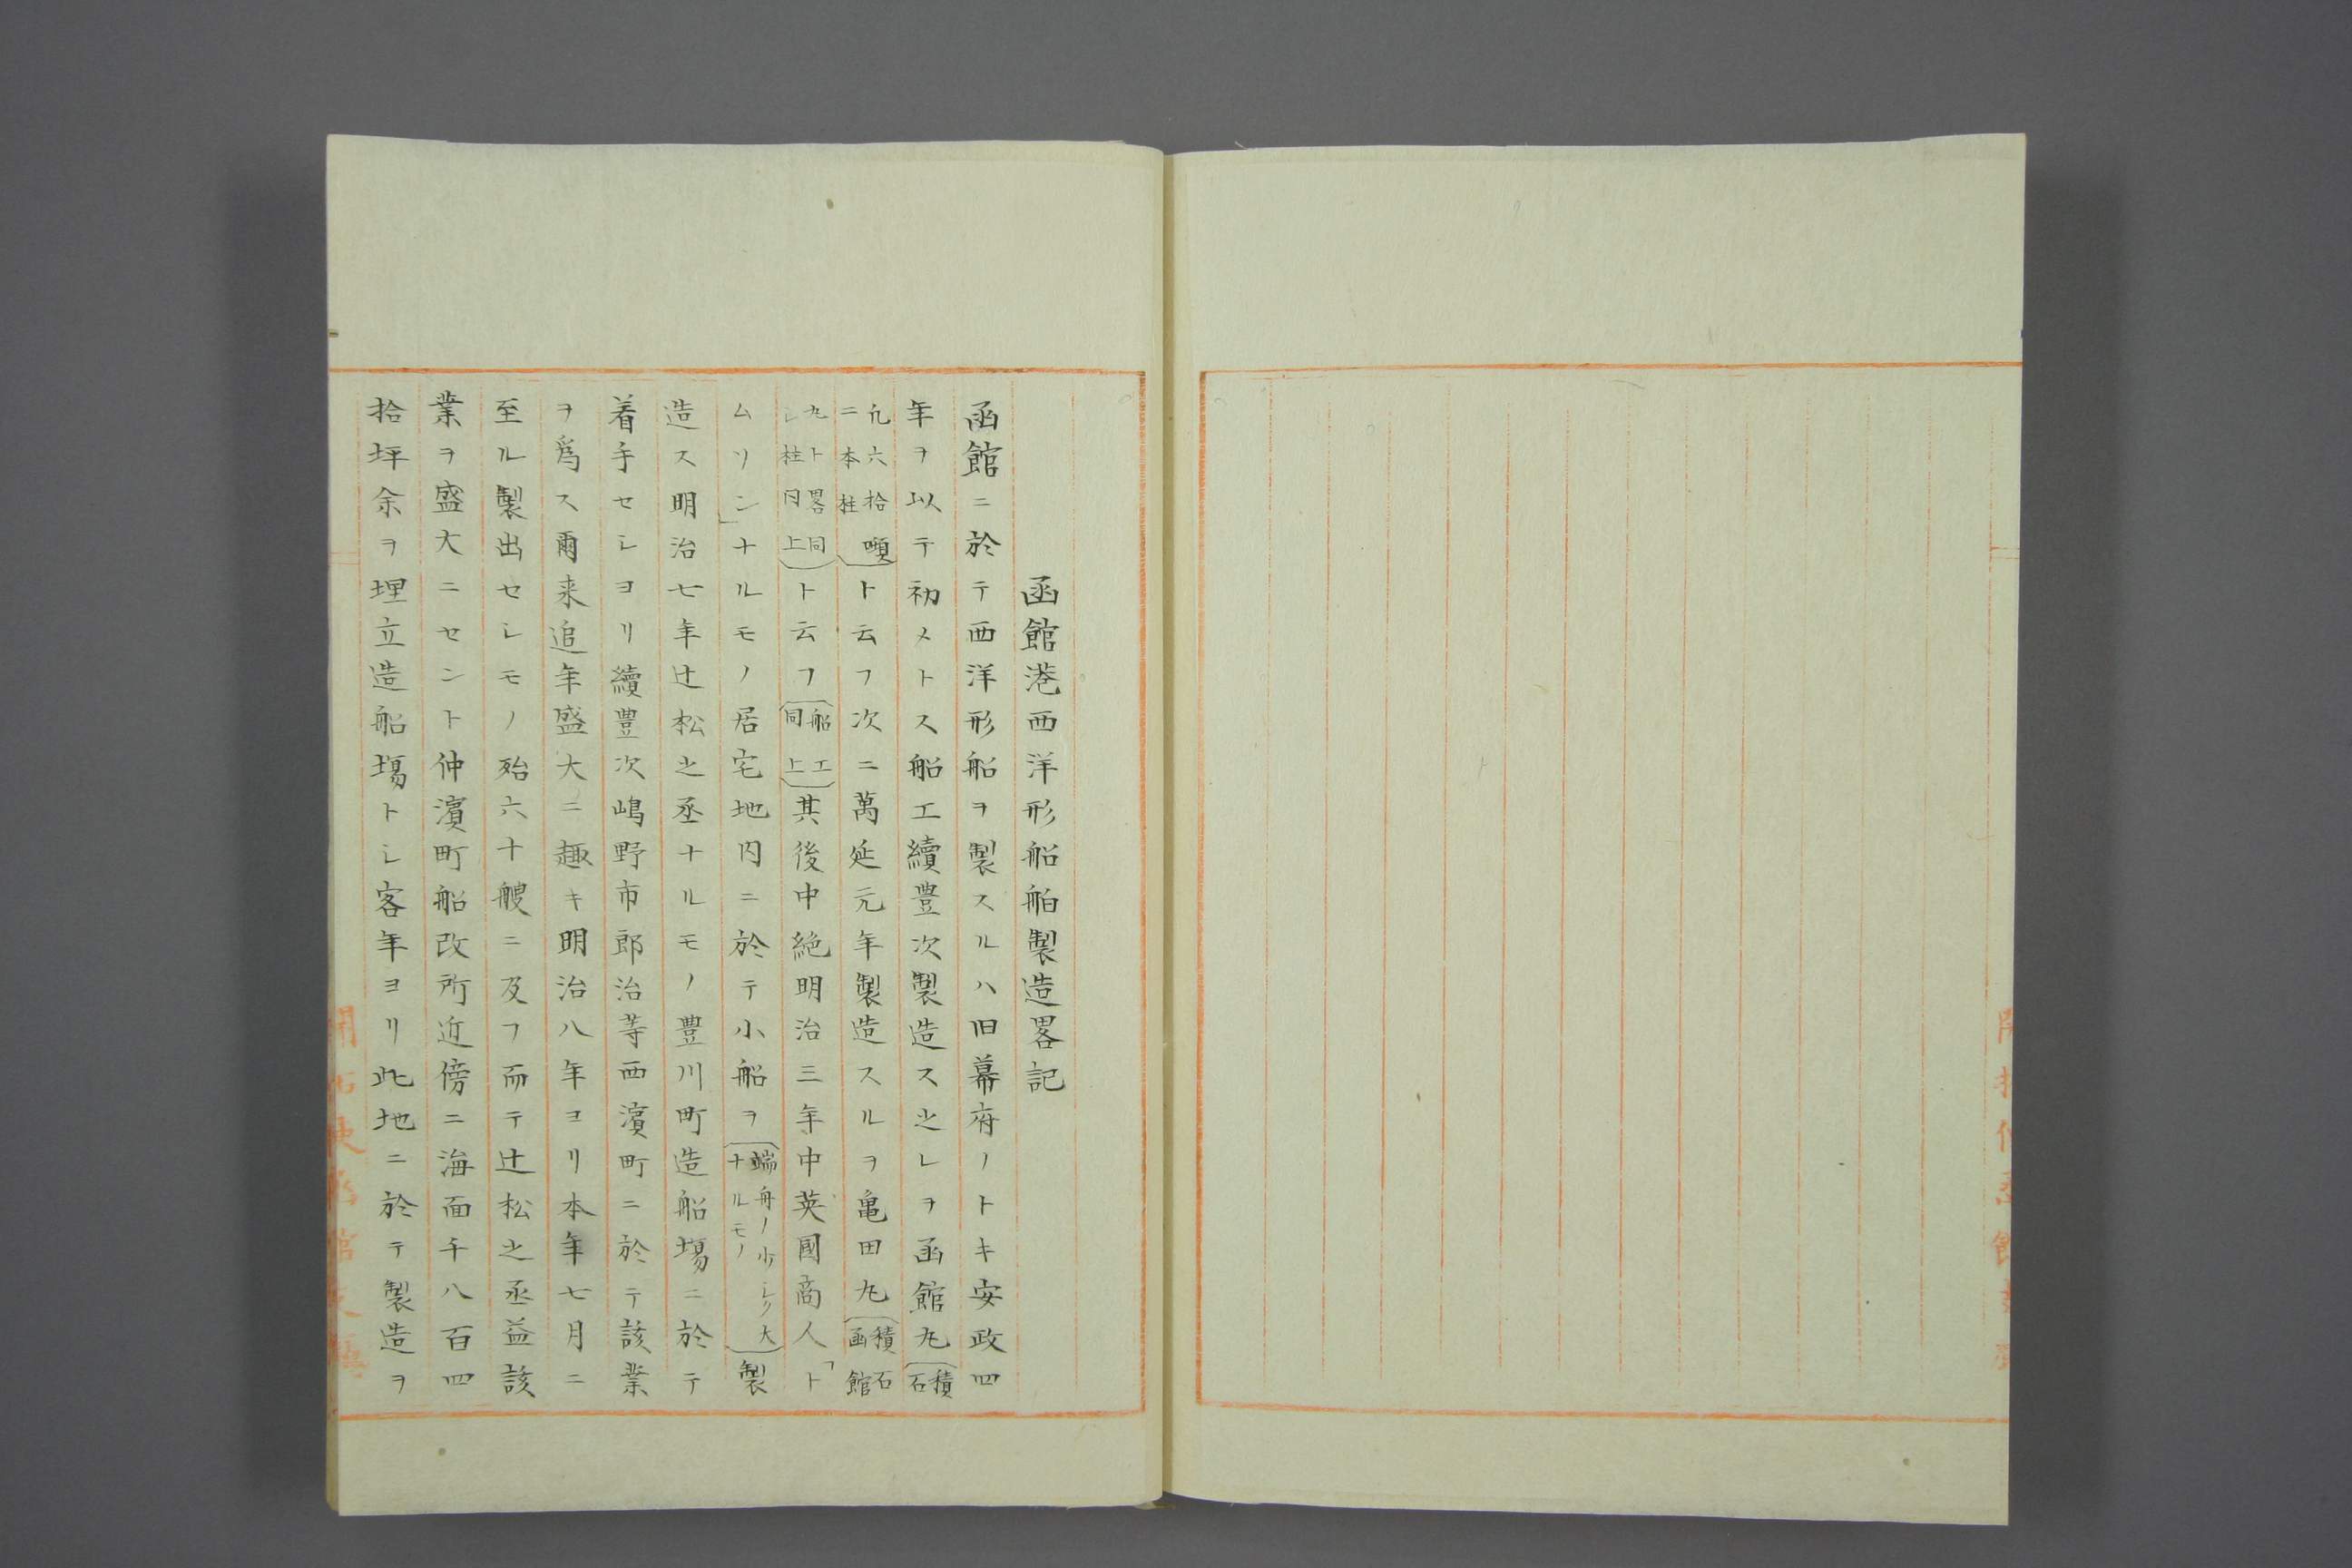 函館港西洋形船舶製造畧記
函館ニ於テ西洋形船ヲ製スルハ旧幕府ノトキ安政四
年ヲ以テ初メトス船工續豊次製造ス之レヲ函館丸(積石
凢六拾噸二本柱)ト云フ次ニ萬延元年製造スルヲ亀田丸(積石函館
丸ト畧同シ柱同上)ト云フ(船工同上)其後中絶明治三年中英國商人「ト
ムソン」ナルモノ居宅地内ニ於テ小船ヲ(端舟ノ少シク大ナルモノ)製
造ス明治七年辻松之丞ナルモノ豊川町造船場ニ於テ
着手セシヨリ續豊次嶋野市郎治等西濱町ニ於テ該業
ヲ爲ス爾来追年盛大ニ趣キ明治八年ヨリ本年七月ニ
至ル製出セシモノ殆六十艘ニ及フ而テ辻松之丞益該
業ヲ盛大ニセント仲濱町船改所近傍ニ海面千八百四
拾坪余ヲ埋立造船場トシ客年ヨリ此地ニ於テ製造ヲ